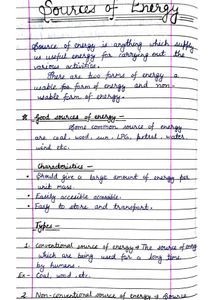 Sources of Energy
Source of energy is anything which supply
us useful energy for carrying out the
various activities.
There are two forms of energy a
usable for form of energy and non-
usable form of energy.
Good sources of energy -
Some common source of energy
are coal, wood, sun, LPG, petrol, water,
wind etc.
Characteristics -
• Should give a large amount of energy per
unit mass.
• Easily accessible
• Easy to store and transport.
Types -
1. Conventional source of energy → The source of energy
which are being used for a long time
by humans.
Ex - Coal, wood etc.
2. Non-conventional source of energy → Source